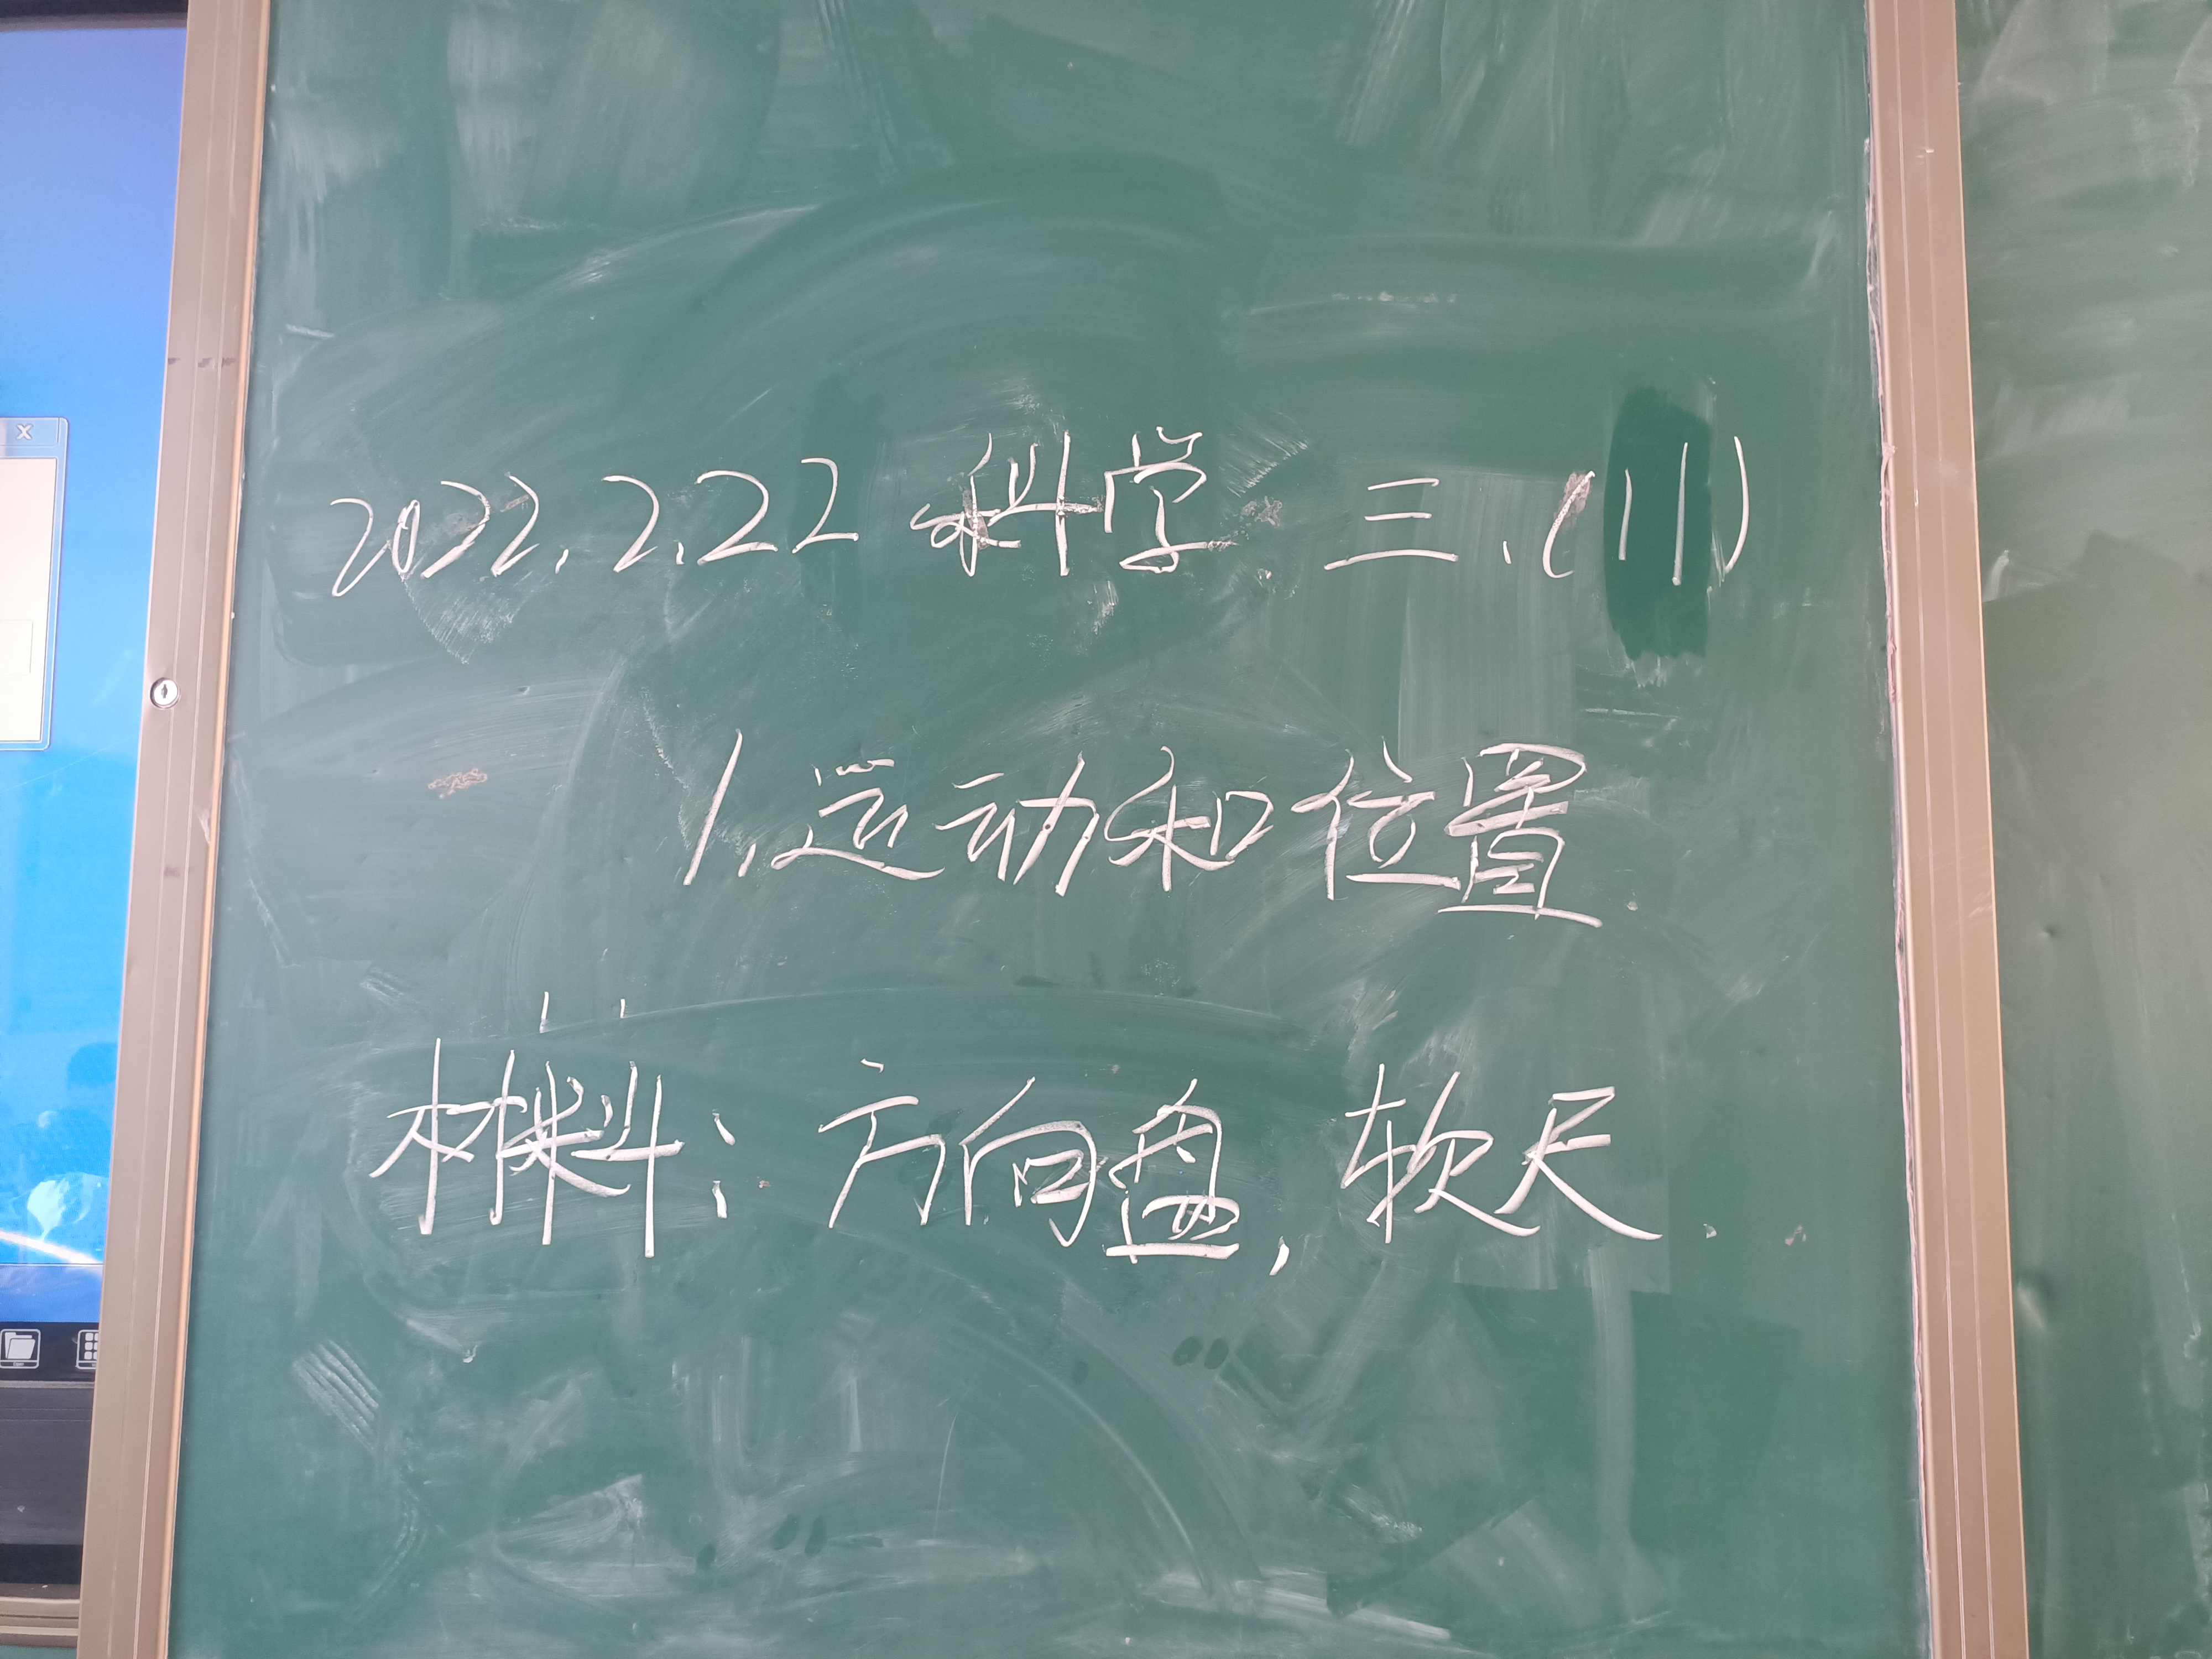 2022.2.22 科学 三.(11)
1.运动和位置.
材料:方向盘,软尺.